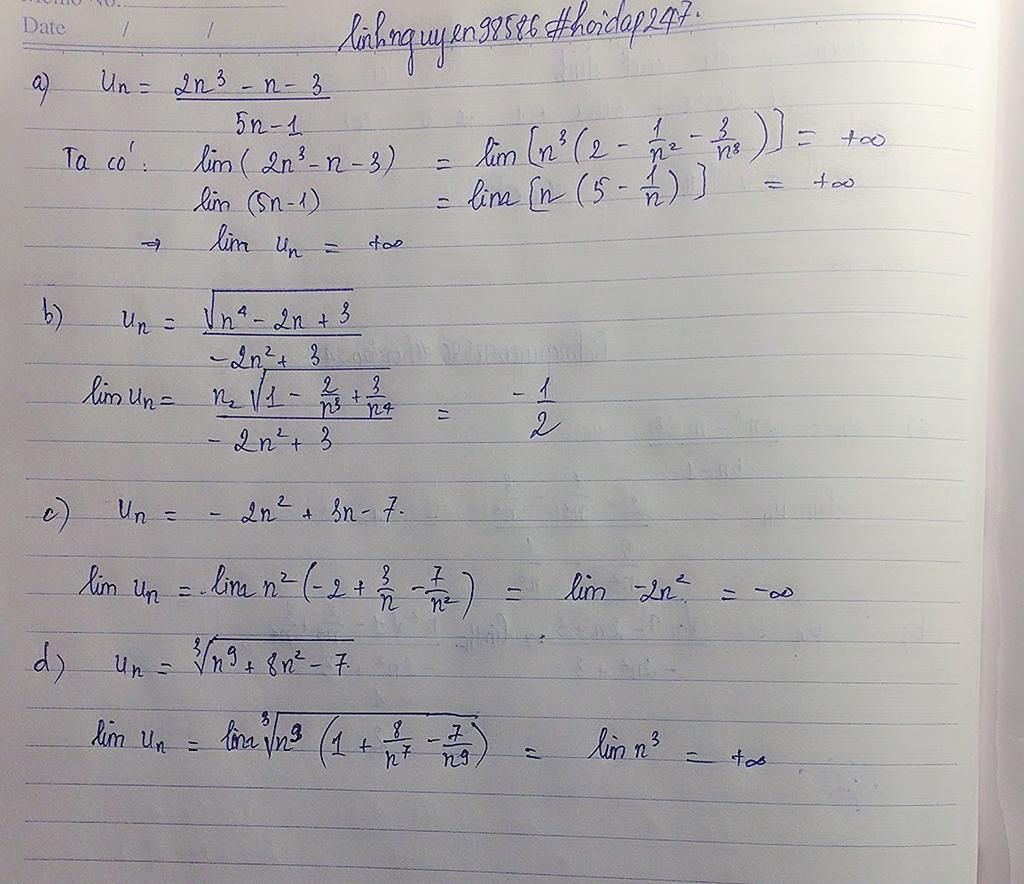 Memo No.
Date / /
linhnguyen98586 #hoidap247.
a) Un = (2n³ - n - 3)/(5n-1)
Ta có: lim(2n³-n-3) = lim[n³(2 - 1/n² - 3/n³)] = +∞
lim (5n-1) = lim [n (5 - 1/n)] = +∞
→ lim Un = +∞
b) Un = √(n⁴ - 2n + 3)/(-2n² + 3)
lim Un = n₂√(1 - 2/n³ + 3/n⁴)/(-2n² + 3) = -1/2
c) Un = - 2n² + 3n - 7.
lim Un = lim n² (-2 + 3/n - 7/n²) = lim -2n² = -∞
d) Un = ³√(n⁹ + 8n² - 7)
lim Un = lim ³√(n⁹ (1 + 8/n⁷ - 7/n⁹)) = lim n³ = +∞